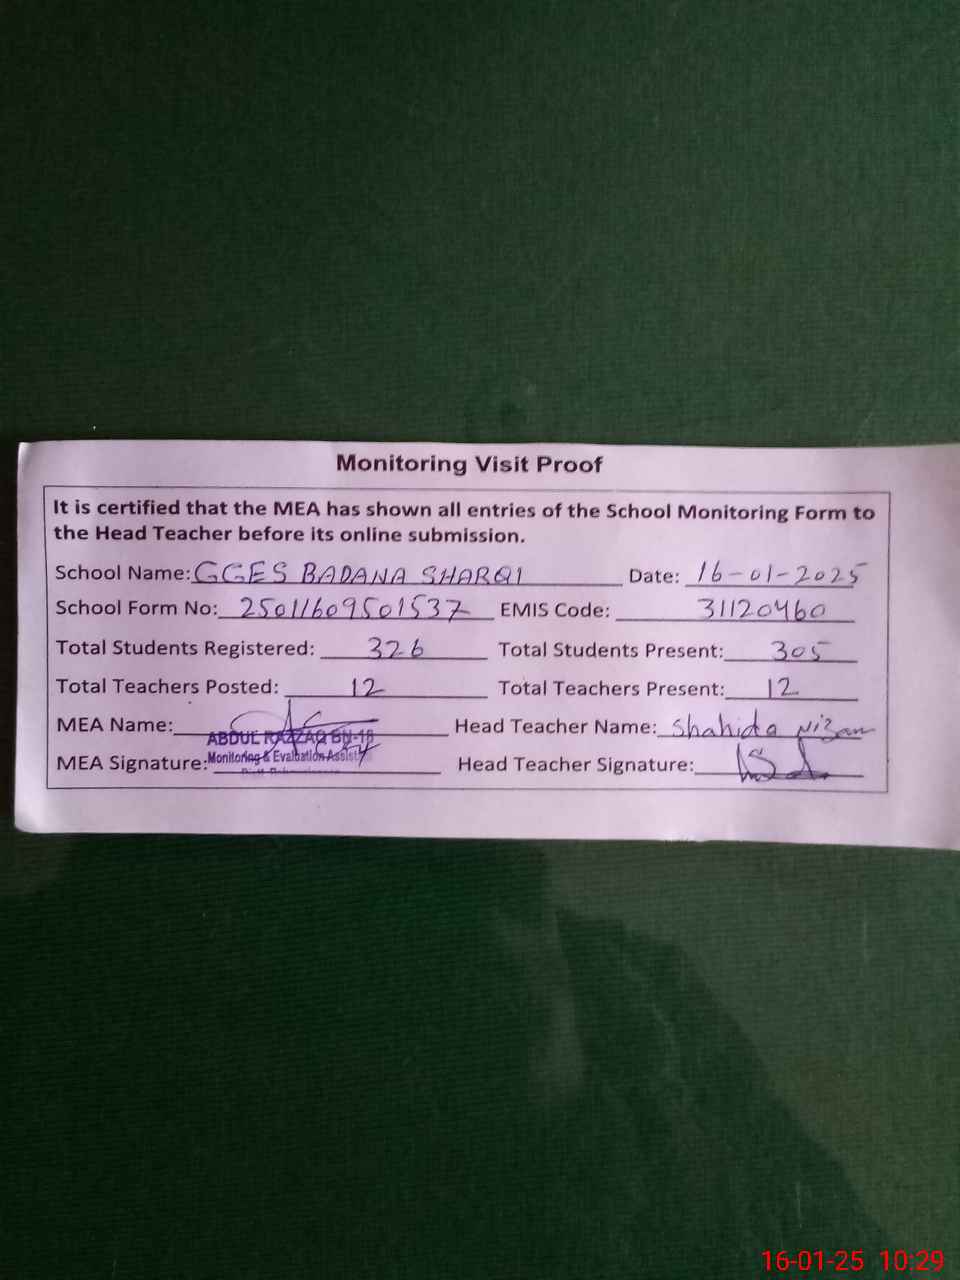 Monitoring Visit Proof
It is certified that the MEA has shown all entries of the School Monitoring Form to
the Head Teacher before its online submission.
School Name: GGES BADANA SHARQI Date: 16-01-2025
School Form No: 25011609501537 EMIS Code: 31120460
Total Students Registered: 326 Total Students Present: 305
Total Teachers Posted: 12 Total Teachers Present: 12
MEA Name: Head Teacher Name: Shahida Nizam
ABDUL RAZZAQ
MEA Signature: Monitoring & Evaluation Assistant Head Teacher Signature:
16-01-25 10:29